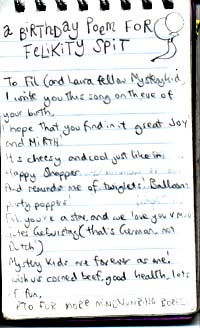 a BiRTHDAY POEM FOR
FELiKiTY SPiT
To Fil (and Laura fellow Mystery kid
I write you this song on the eve of
your birth,
I hope that you find in it great JOY
and MiRTH!
It's cheesy and cool just like in
Happy Shopper
And reminds me of twiglets, Balloons
party poppers
Fil, you're a star, and we love you v much
Gutes Geburtstag (that's German, not
Dutch!)
Mystery Kids are forever as one.
wish us corned beef, good health, lots
of fun.
PTO FOR MORE MIND NUMBING